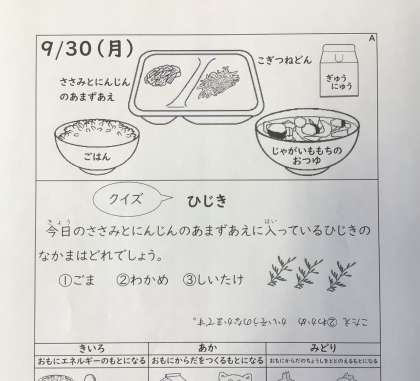 A
9/30(月)
ささみとにんじん
のあまずあえ
こぎつねどん
ぎゅう
にゅう
ごはん
じゃがいももちの
おつゆ
クイズ
ひじき
きょう
はい
今日のささみとにんじんのあまずあえに入っているひじきの
なかまはどれでしょう。
①ごま ②わかめ ③しいたけ
こたえ ②わかめ かいそうのなかまです。
きいろ
あか
みどり
おもにエネルギーのもとになる
おもにからだをつくるもとになる
おもにからだのちょうしをととのえるもとになる